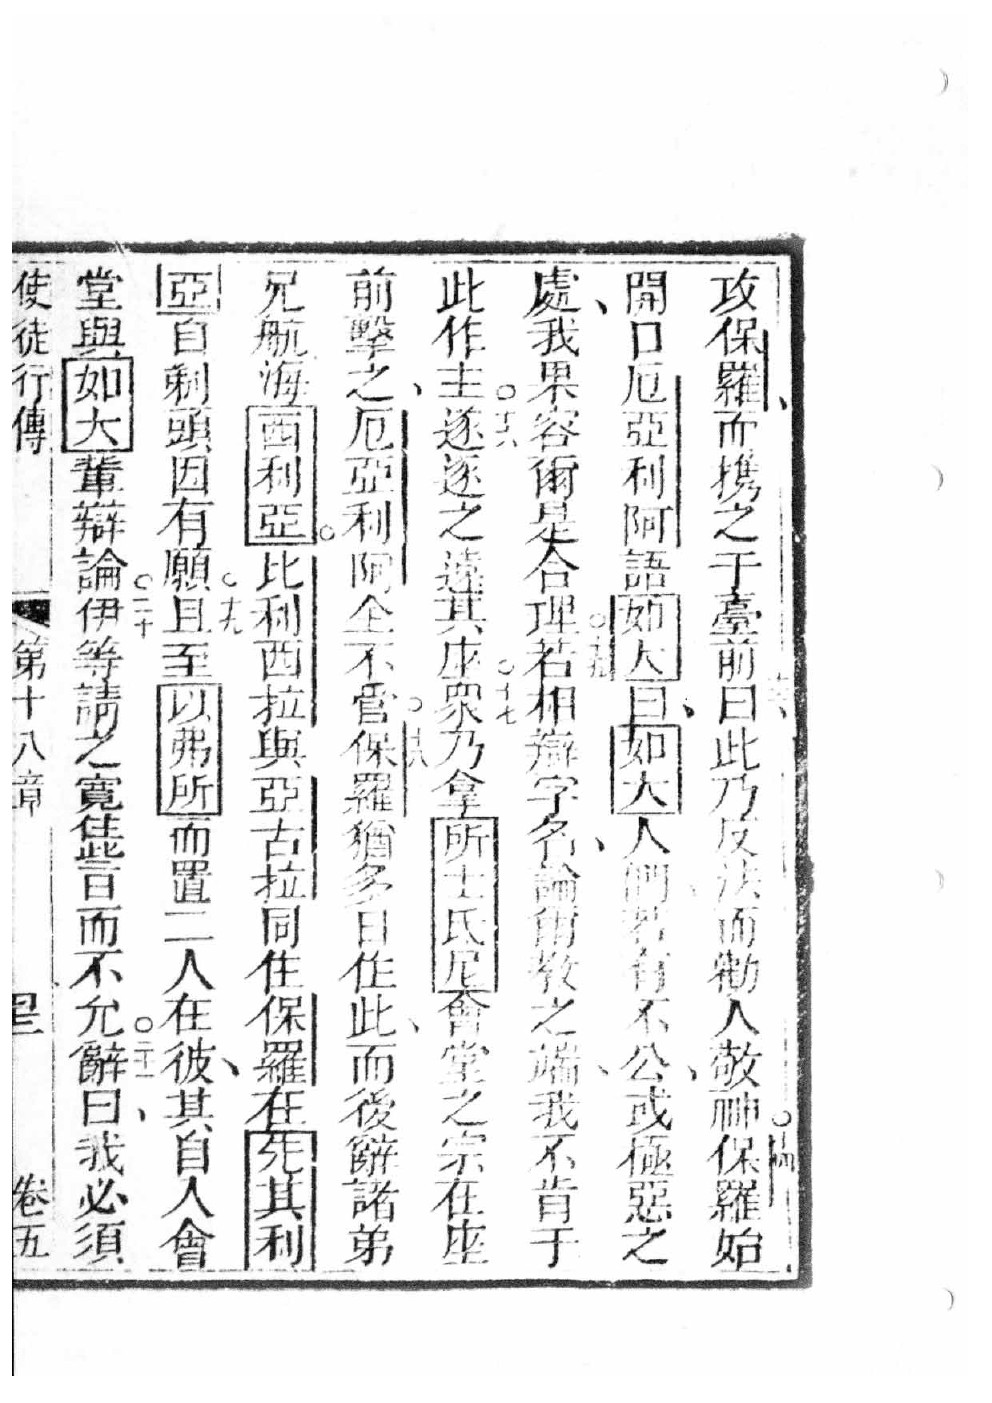 攻保羅而攜之于臺前曰此乃反法而勸人敬神○十四保羅始
開口厄亞利阿語如大曰如大人們若有不公或極惡之
處我果容爾是合理○十五若相辯字名論爾教之端我不肯于
此作主○十六逐逐之遠其座○十七眾乃拿所士氏尼會堂之宗在座
前擊之厄亞利阿全不管○十八保羅猶多日住此而後辭諸弟
兄航海西利亞○比利西拉與亞古拉同住保羅在死其利
亞自剃頭因有願○十九且至以弗所而置二人在彼其自人會
堂與如大輩辯論○二十伊等請之寬住些言而不允○二十一辭曰我必須
使徒行傳 第十八章 卷五